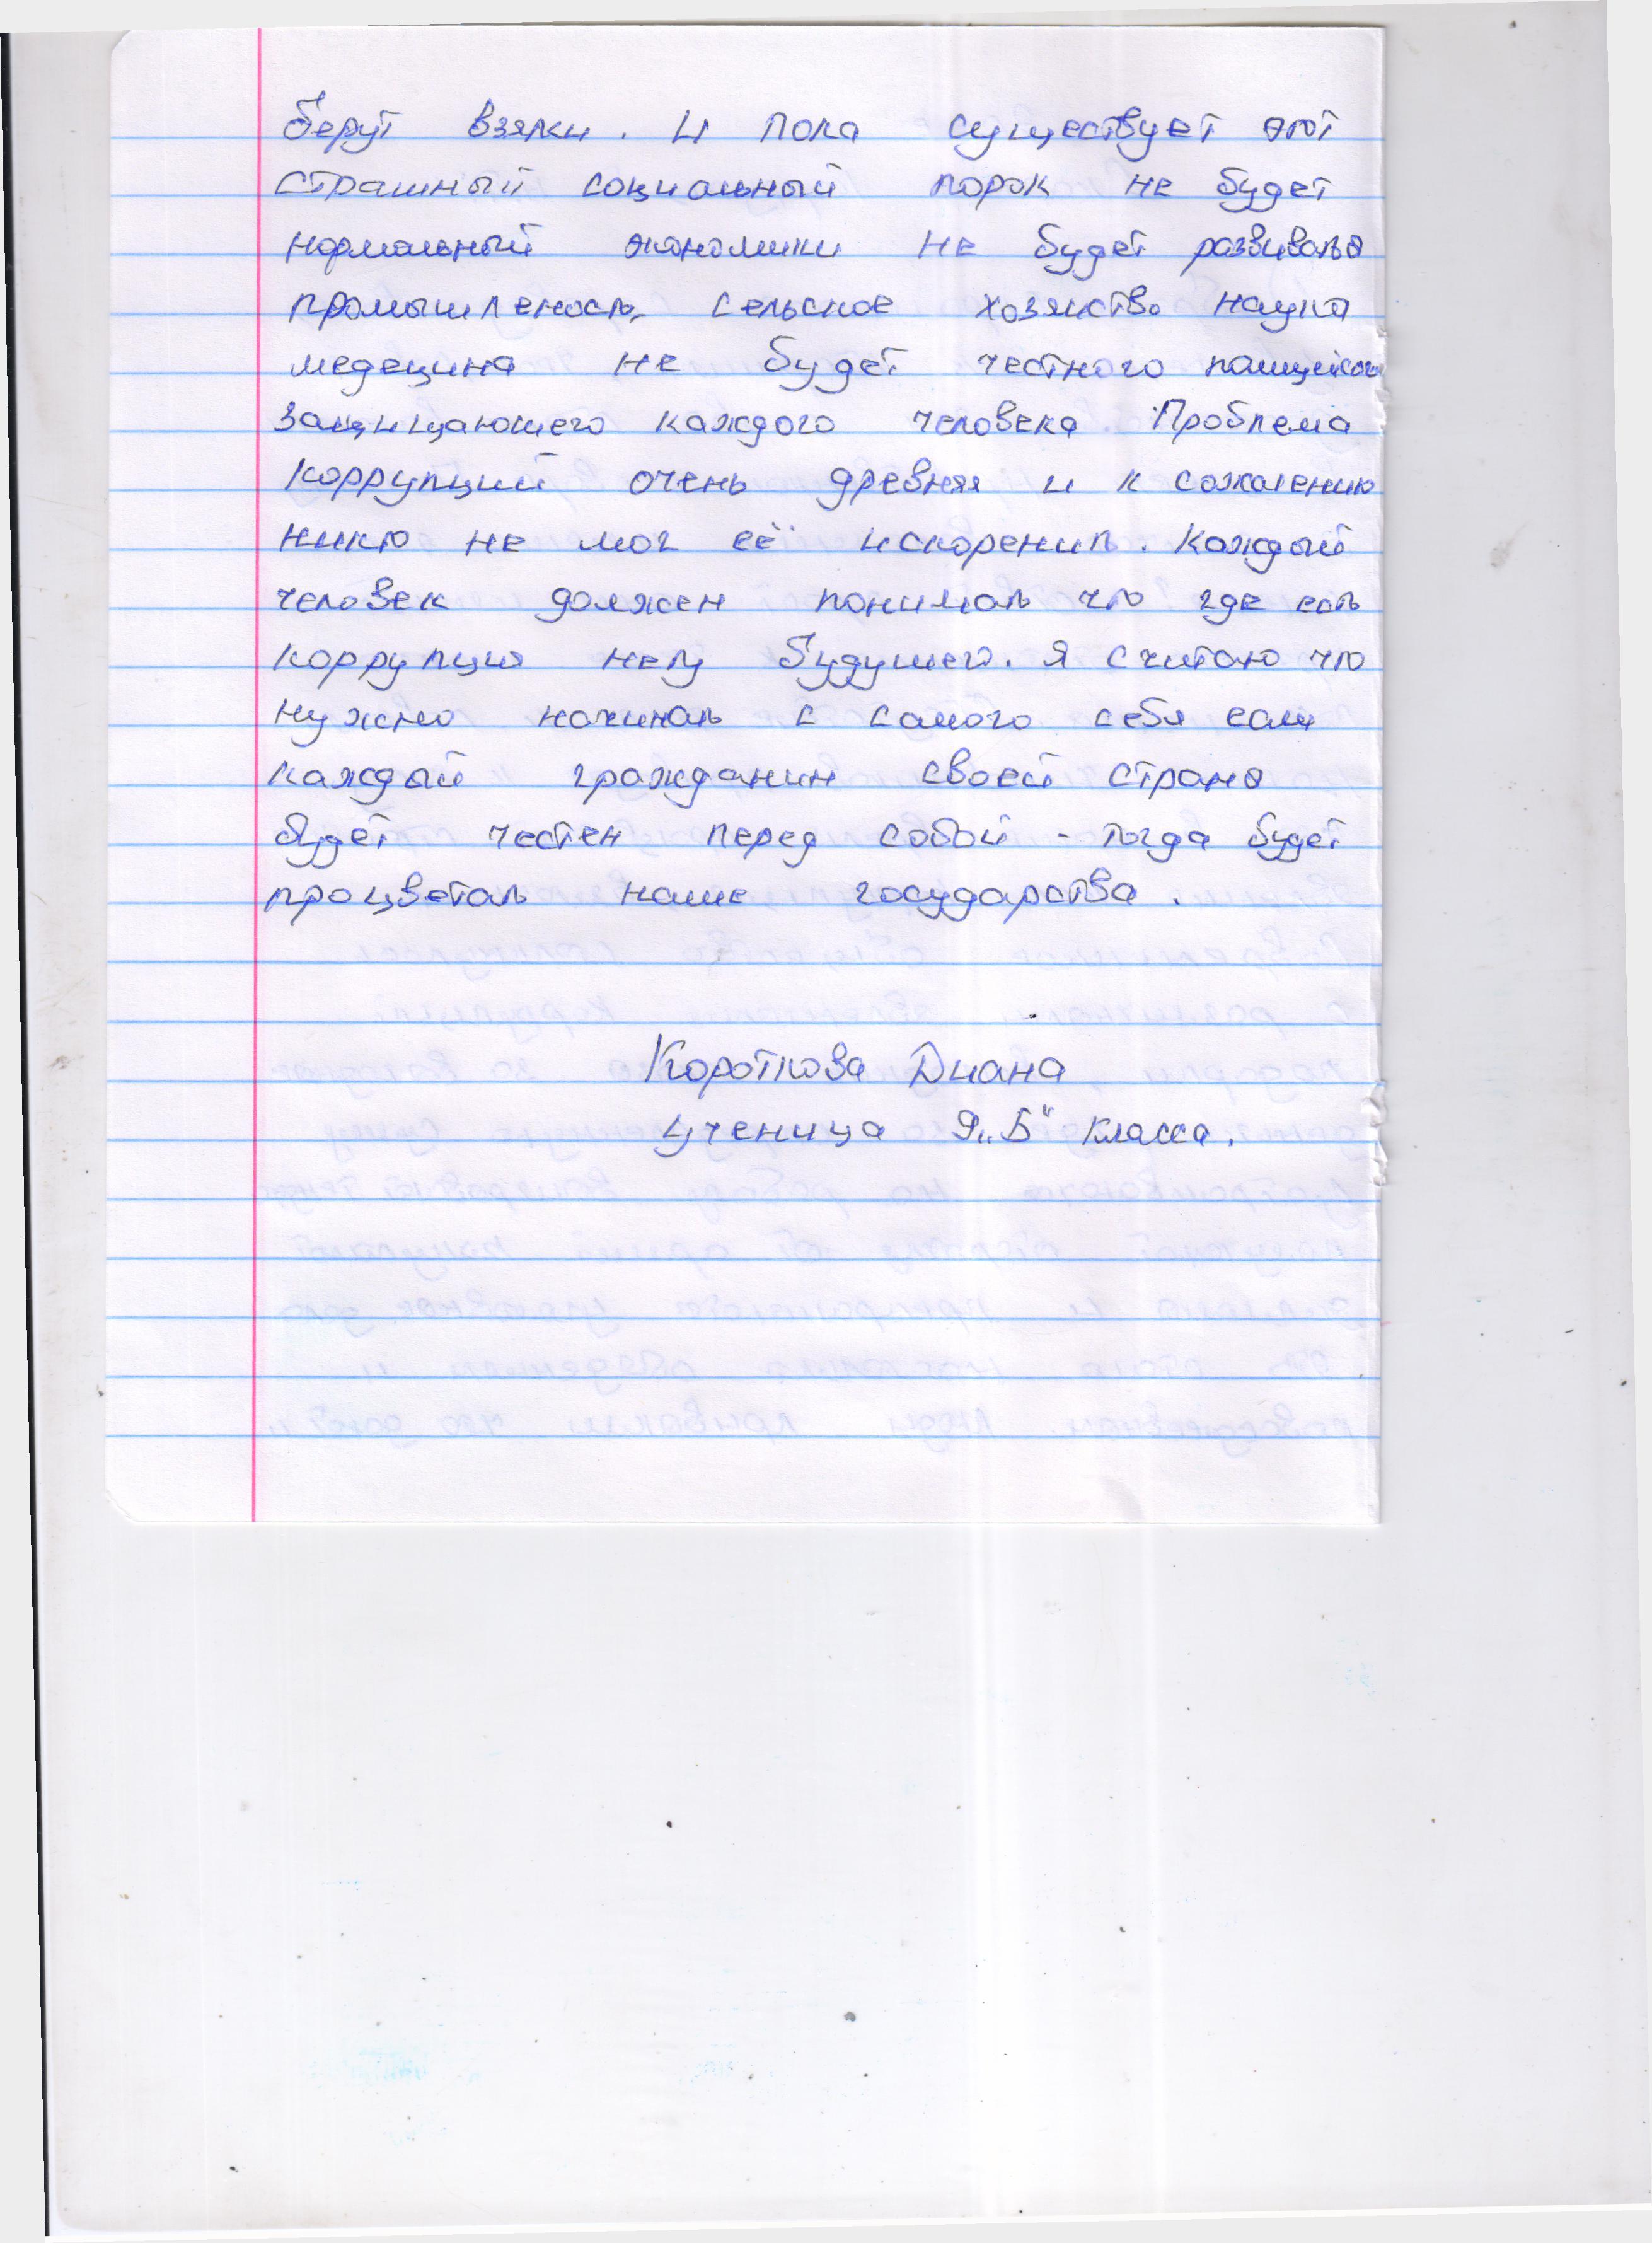 берут взятки. И пока существует этот
страшный социальный порок не будет
нормальный экономики не будет развиваться
промышленость, сельское хозяйство наука
медецина не будет честного полицейского
защищающего каждого человека. Проблема
коррупций очень древняя и к сожалению
никто не мог её искоренить. Каждый
человек должен понимать что где есть
коррупция нету будущего. Я считаю что
нужно начинать с самого себя если
каждый гражданин своей страна
будет честен перед собой - тогда будет
процветать наше государства.
Короткова Диана
ученица 9 „Б" класса.